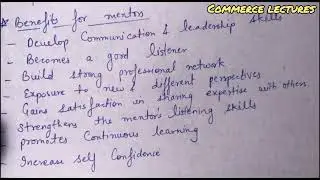 COMMERCE LECTURES
* Benefits for mentors
- Develop Communication & leadership skills
- Becomes a good listener
- Build strong professional network
- Exposure to new & different perspectives
- Gains satisfaction in sharing expertise with others.
- Strengthens the mentor's listening skills
- promotes Continuous learning
- Increase self Confidence